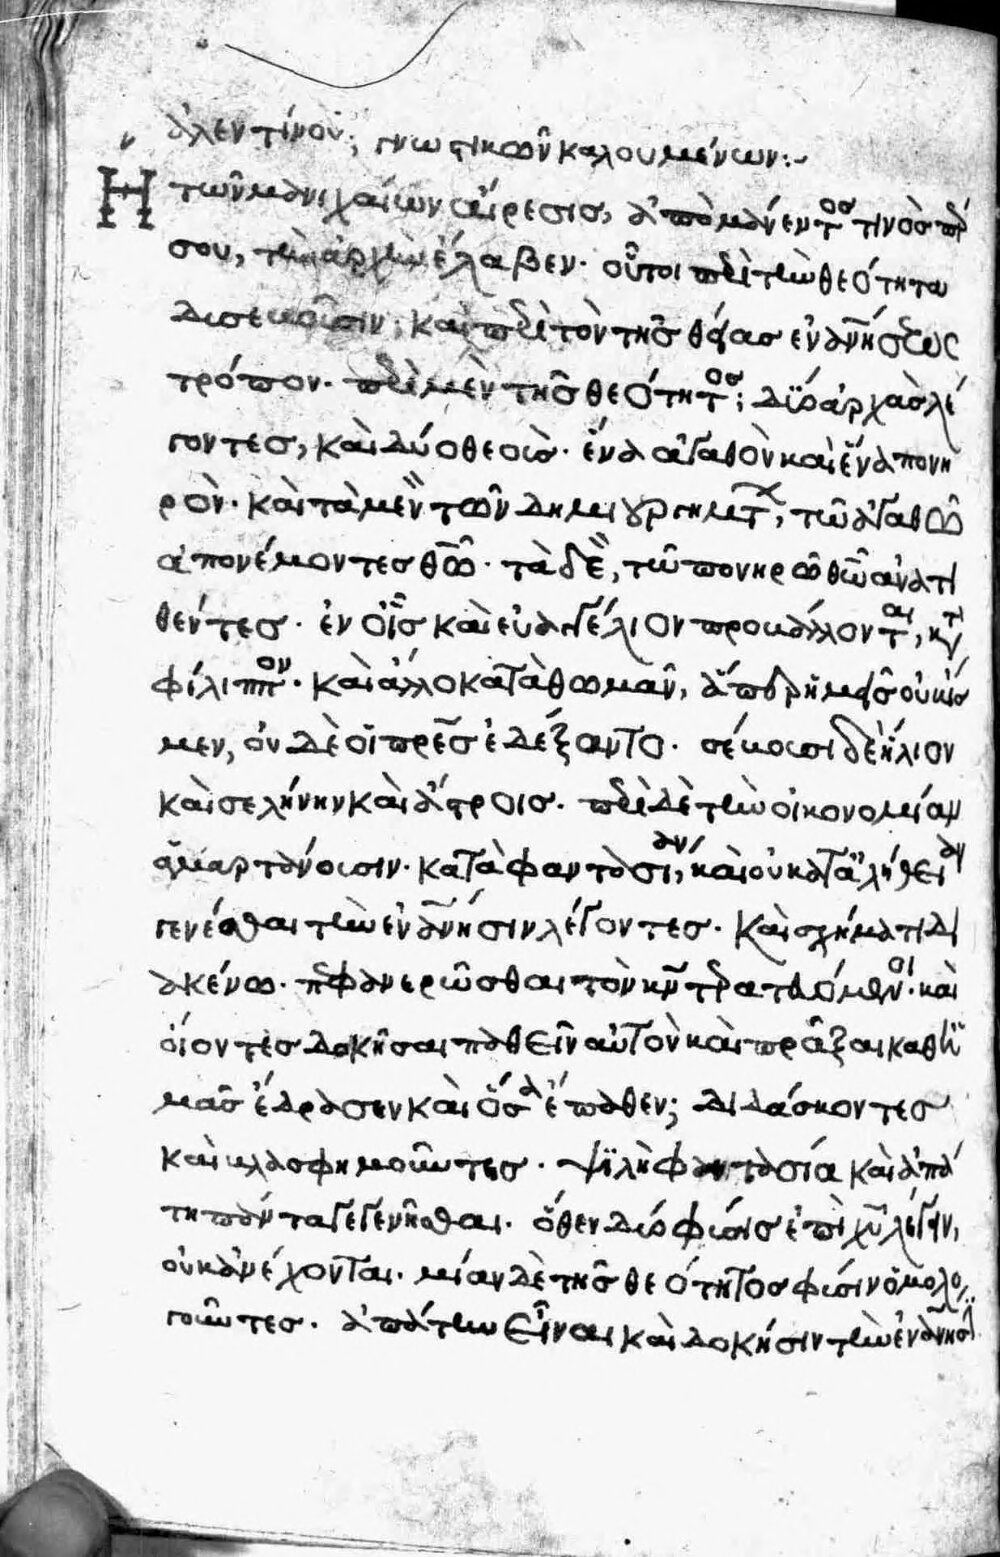 αλεντίνου, γνωστικῶν καλουμένων:-
Ἡ τῶν μανιχαίων αἵρεσις, ἀπὸ μάνεντος τινὸς πέρ
σου, τὴν ἀρχὴν ἔλαβεν· οὗτοι περὶ τὴν θεότητα
δυσσεβοῦσιν, καὶ περὶ τὸν τῆς θείας ἐνανθρωπήσεως
τρόπον· περὶ μὲν τῆς θεότητος, δύο ἀρχὰς λέ
γοντες, καὶ δύο θεοὺς· ἕνα ἀγαθὸν καὶ ἕνα πονη
ρὸν· καὶ τὰ μὲν τῶν δημιουργημάτων, τῶ ἀγαθῶ
ἀπονέμοντες θεῶ· τὰ δὲ, τῶ πονηρῶ θεῶ ἀνατι
θέντες· ἐν οἷς καὶ εὐαγγέλιον προβάλλονται, κατὰ
φίλιππον· καὶ ἄλλο κατὰ θωμᾶν, ἅπερ ἡμεῖς οὐκ ἴσ
μεν, οὐδὲ οἱ πρες ἐδέξαντο· σέβουσι δὲ ἥλιον
καὶ σελήνην καὶ ἄστροις· περὶ δὲ τὴν οἰκονομίαν
ἁμαρτάνουσιν· κατὰ φαντασίαν, καὶ οὐ κατὰ ἀλήθειαν
γενέσθαι τὴν ἐνανθρώπησιν λέγοντες· καὶ σχήματι δι
ακένω· πεφανερῶσθαι τὸν κν διατρανοῦμενοι· καὶ
οἷον τες δοκῆσαι παθεῖν αὐτὸν καὶ πρᾶξαι καθ' ἡ
μᾶς ἔδρασεν καὶ ὅσα ἔπαθεν; διδάσκοντες
καὶ βλασφημοῦντες· ψιλῆ φαντασία καὶ ἀπά
τη πάντα γεγενῆσθαι· ὅθεν δύο φύσις ἐπὶ χυ λέγειν,
οὐκ ἀνέχονται· μίαν δὲ τῆς θεότητος φύσιν ὁμολο
γοῦντες· ἀπάτην εἶναι καὶ δόκησιν τὴν ἐνανθρώπησι